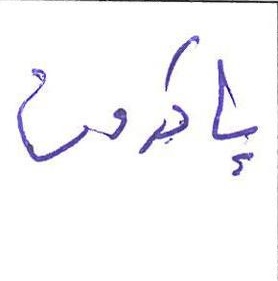 پاکروح